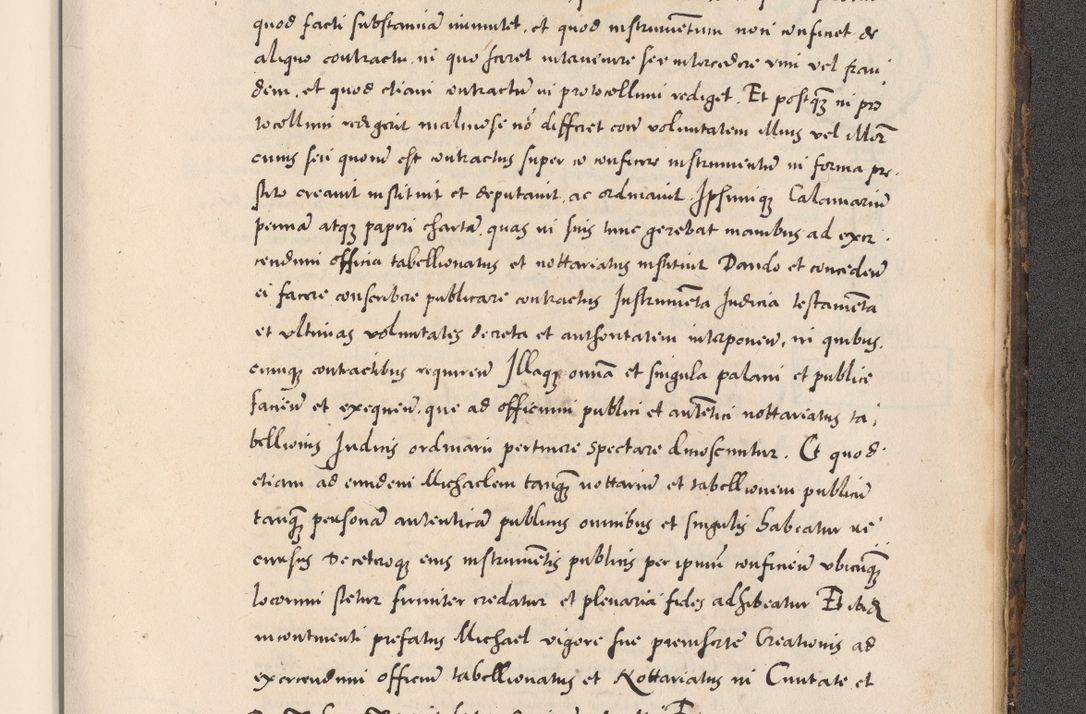 quod facti substantiã immutet, et quod instrumẽtum non conficiet de
aliquo contractu in quo sciret interuenire seu intercedere vim vel frau
dem, et quod etiam contractũ in protocollum rediget. Et postq̃ in pro
tocollum redigerit maliciose nõ differet contr voluntatem illius vel illor̃
cuius seu quorũ est contractus super eo conficere instrumentũ in forma pre
stito creauit instituit et deputauit, ac ordinauit Ipsumq; Calamariũ
pennã atq; papiri chartã, quas in suis tunc gerebat manibus ad exer
cendum officia tabellionatus et nottariatus instituit Dando et concedeñ
ei facere conscribere publicare contractus Instrumẽta Iudicia testamẽta
et vltimas voluntates decreta et authoritatem interponeñ, in quibus
cumq; contractibus requireñ Illaq; omñia et singula palam et publice
facieñ et exequeñ, que ad officium publici et autẽtici nottariatus ta
bellionis Iudicis ordinarii pertinere spectare dinoscuntur. Et quod
etiam ad eundem Michaelem tanq̃ nottariũ et tabellionem publicũ
tanq̃ personã autenticã publicus omnibus et singulis habeatur re
cursus Deceteroq; eius instrumẽtis publicis per ipsum conficieñ vbicunq̃
locorum stetur firmiter credatur et plenaria fides adhibeatur Et ibid
incontinenti prefatus Michael vigore sue premisse Creationis ad
exercendum officiũ tabellionatus et Nottariatus in Ciuitate et